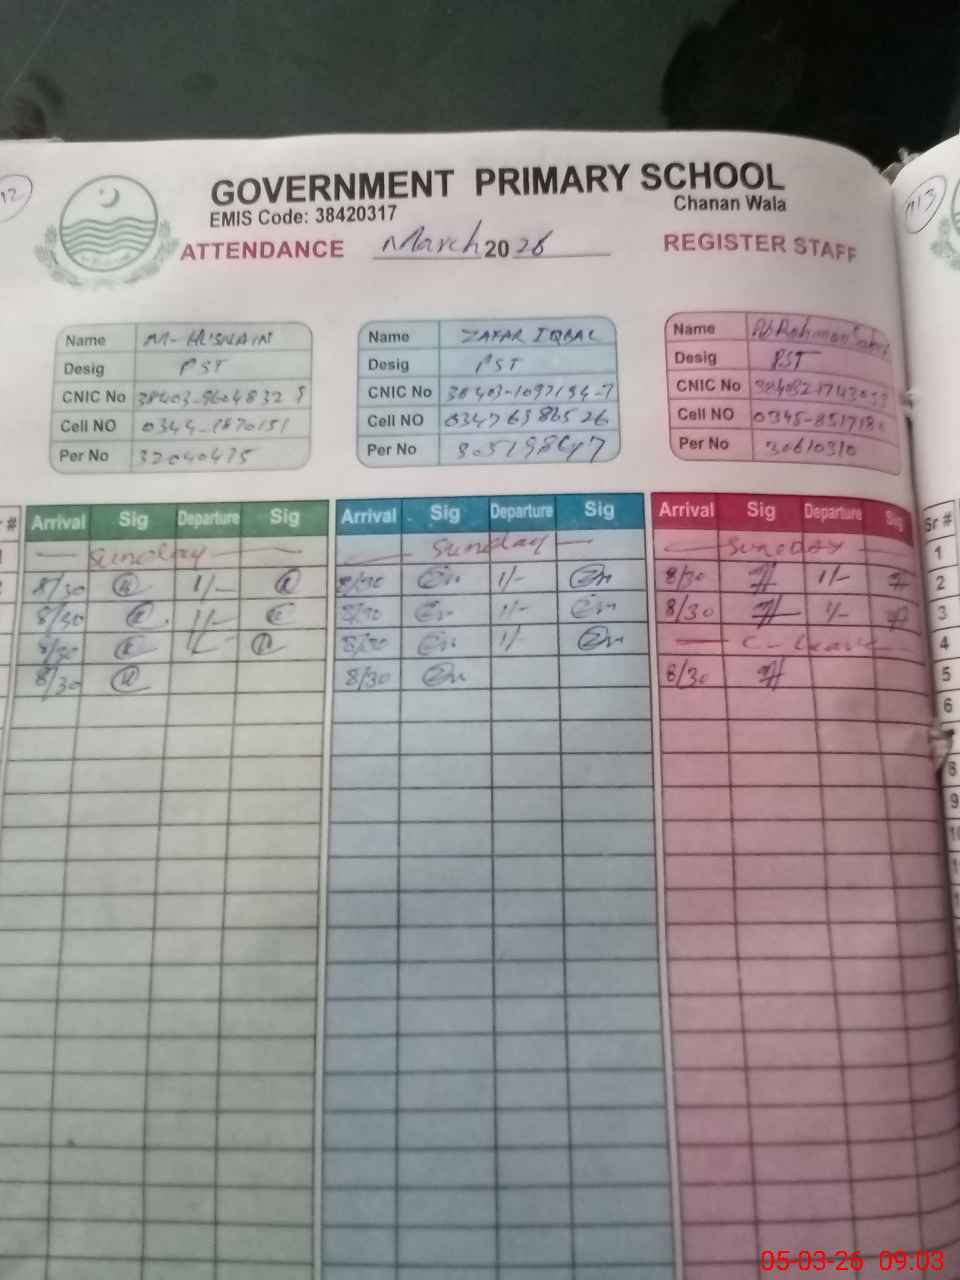 12
GOVERNMENT PRIMARY SCHOOL
EMIS Code: 38420317
Chanan Wala
113
ATTENDANCE March 2026 REGISTER STAFF
Name M-HUSNAIN
Desig PST
CNIC No 38403-9604832 9
Cell NO 0344-1870151
Per No 32040475
Name ZAFAR IQBAL
Desig PST
CNIC No 38403-1097194-7
Cell NO 03476386526
Per No
Name
Desig PST
CNIC No
Cell NO
Per No 30610310
Arrival Sig Departure Sig Arrival Sig Departure Sig Arrival Sig Departure Sig Sr #
Sunday Sunday Sunday 1
8/30 1/- 8/30 1/- 8/30 1/- 2
8/30 1/- 8/30 1/- 8/30 1/- 3
8/30 1/- 8/30 1/- C-Leave 4
8/30 8/30 8/30 5
6
8
9
05-03-26 09:03